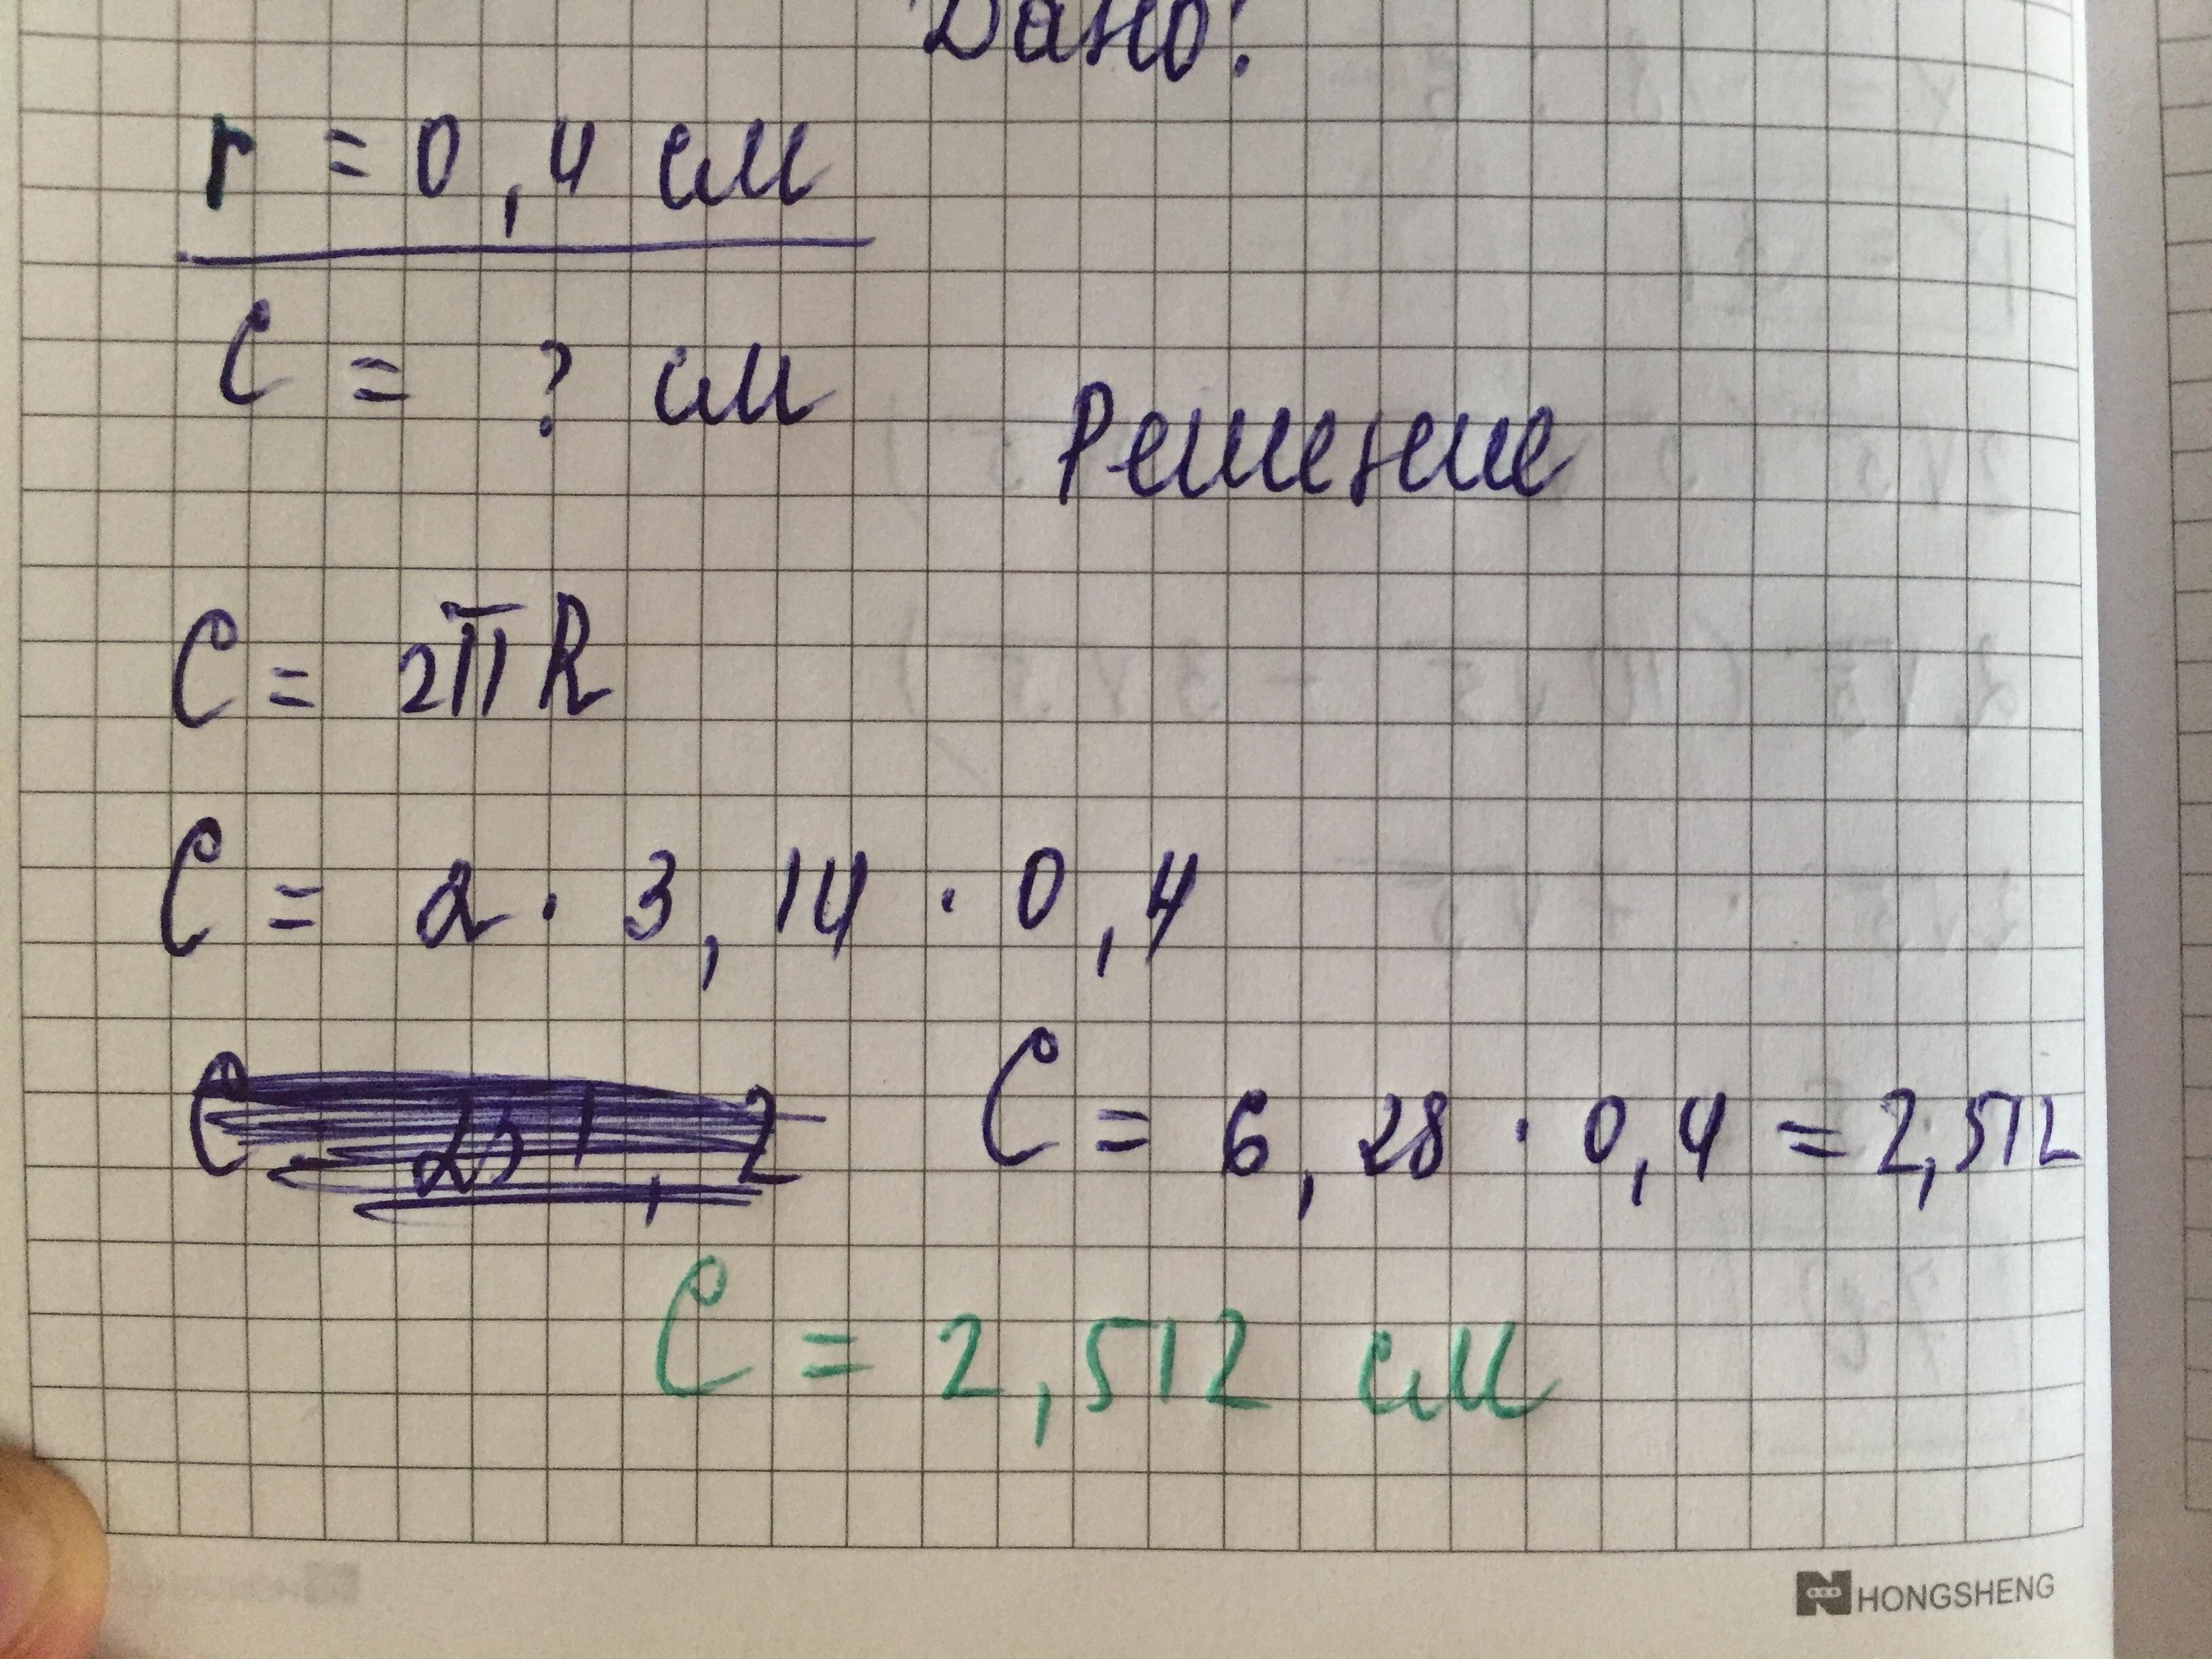 Дано:
r = 0,4 см
C = ? см
Решение
C = 2πR
C = 2 · 3,14 · 0,4
C = 251,2
C = 6,28 · 0,4 = 2,512
C = 2,512 см
HONGSHENG